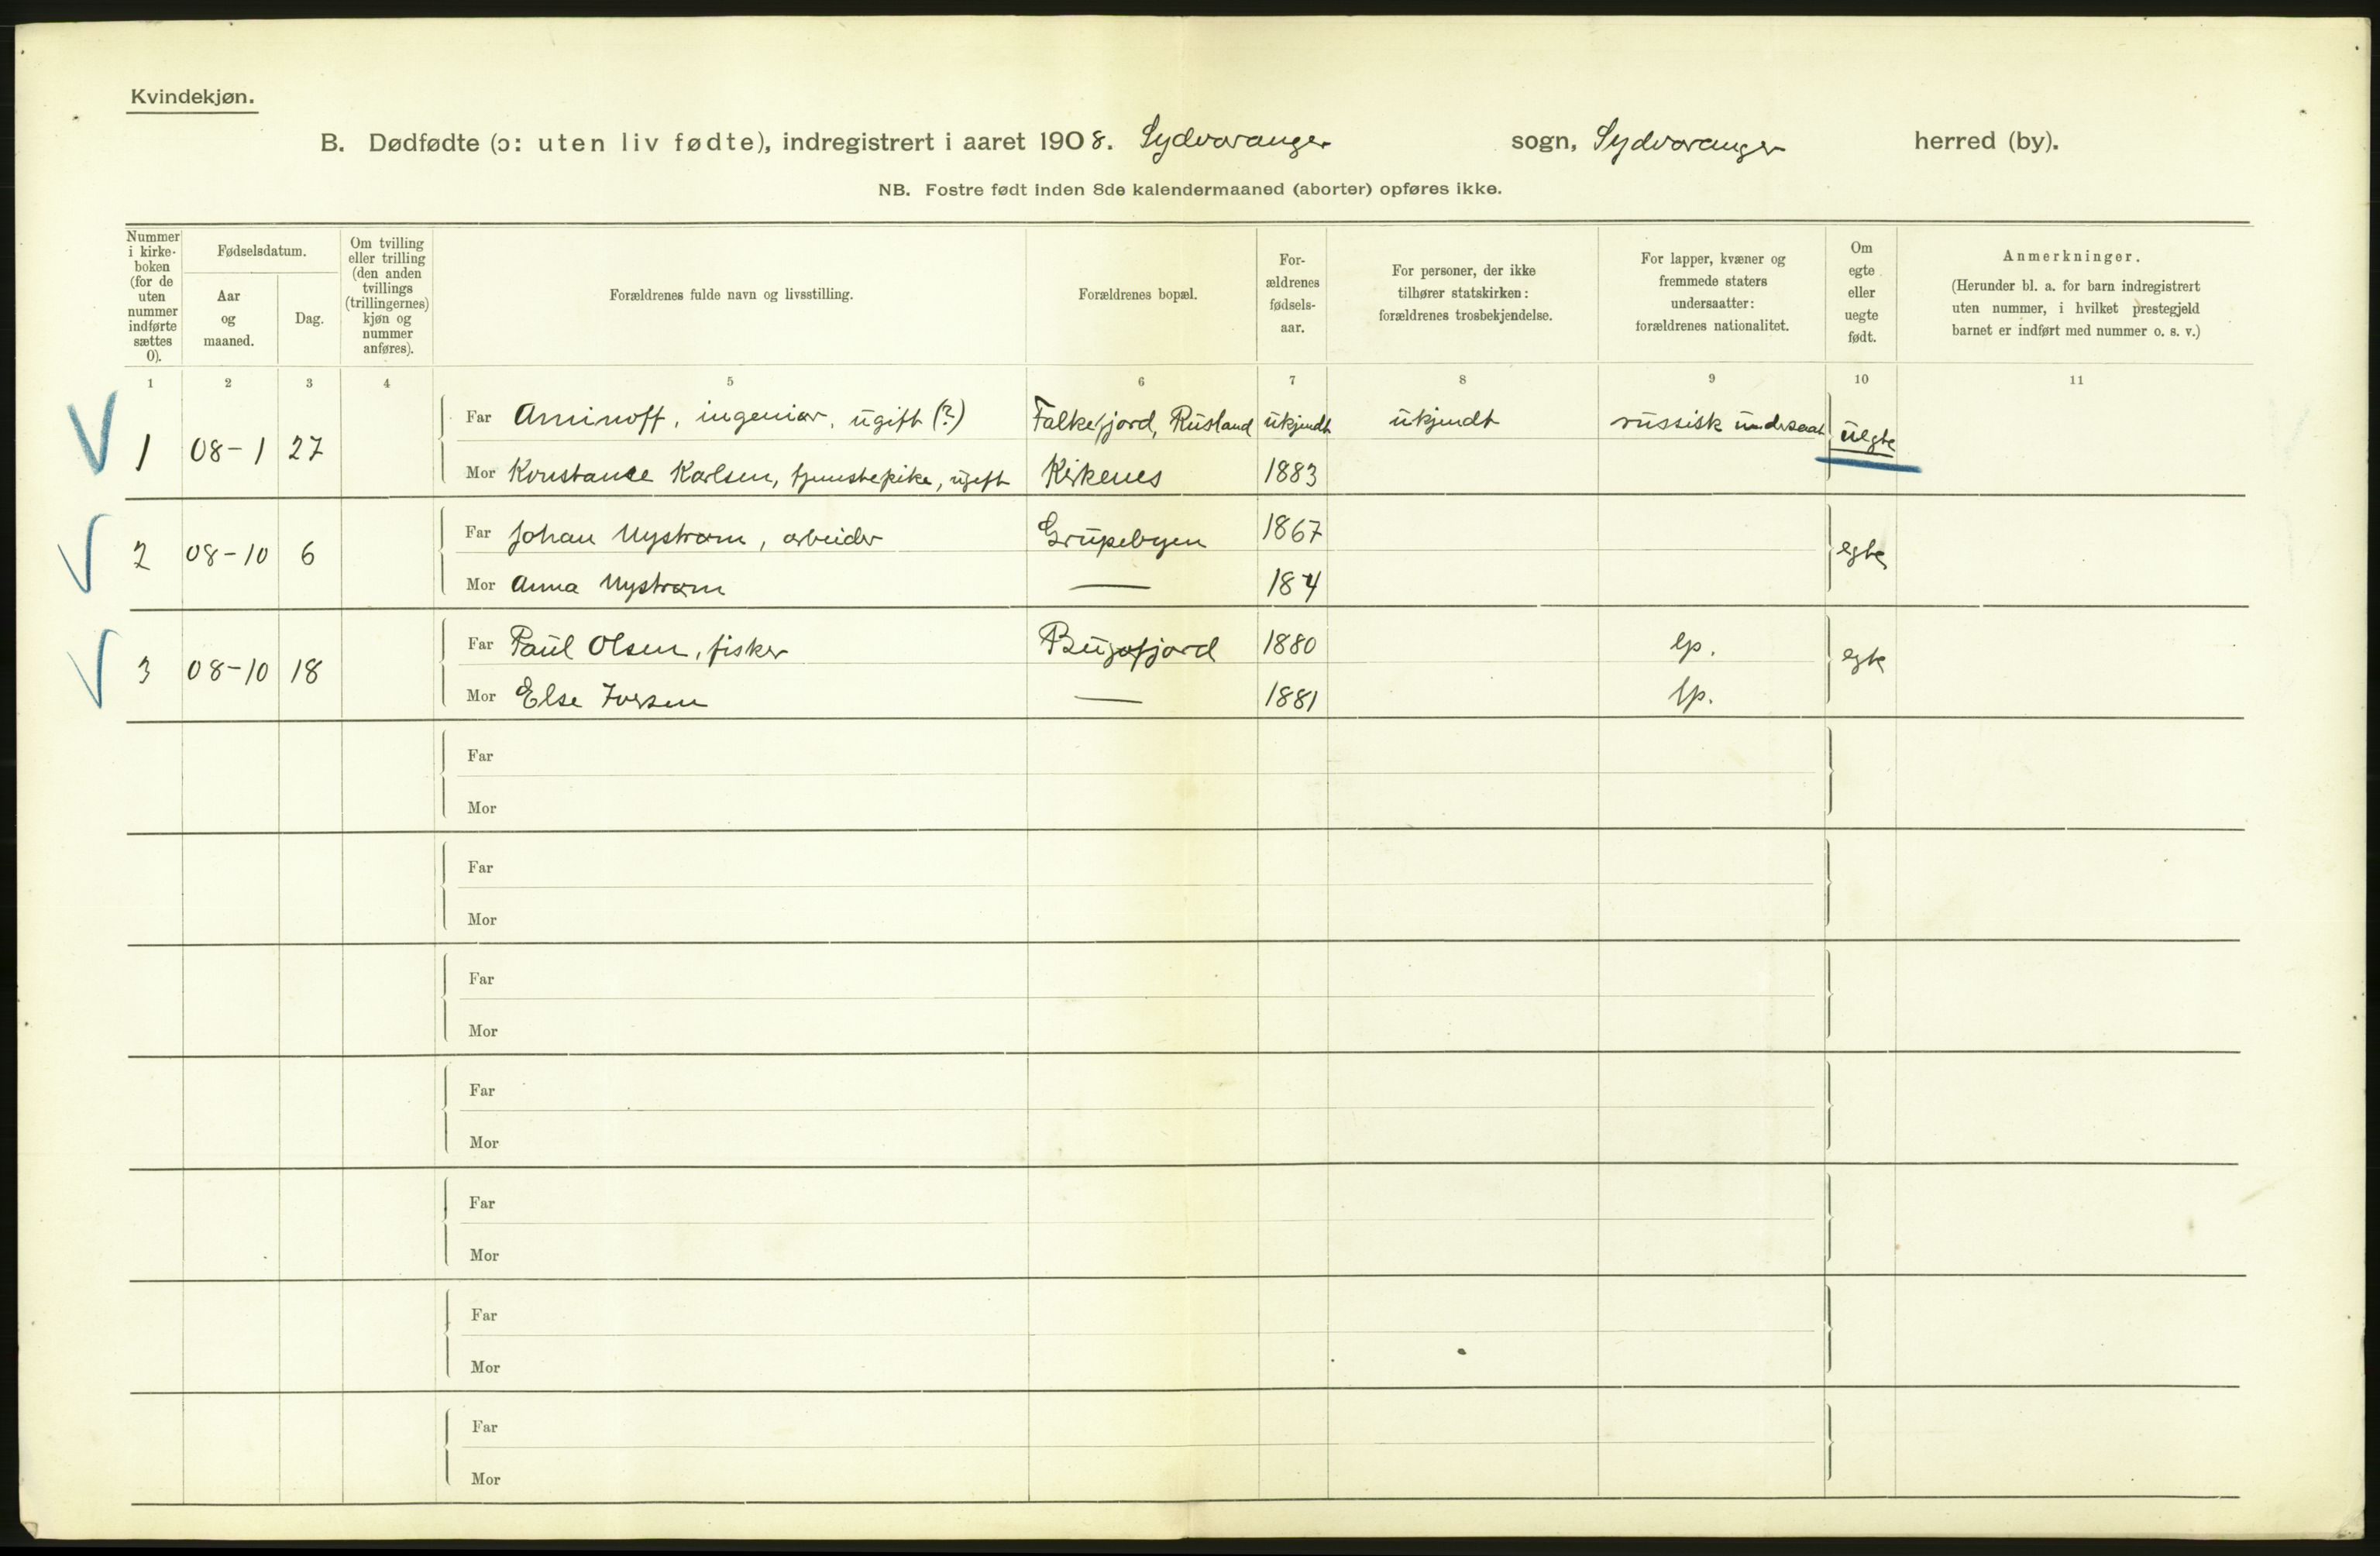 Kvindekjøn.
B. Dødfødte (ɔ: uten liv fødte), indregistrert i aaret 1908. Sydvaranger sogn, Sydvaranger herred (by).
NB. Fostre født inden 8de kalendermaaned (aborter) opføres ikke.
Nummer i kirke-boken (for de uten nummer indførte sættes 0).
Fødselsdatum.
Aar og maaned.
Dag.
Om tvilling eller trilling (den anden tvillings (trillingernes) kjøn og nummer anføres).
Forældrenes fulde navn og livsstilling.
Forældrenes bopæl.
For-ældrenes fødsels-aar.
For personer, der ikke tilhører statskirken: forældrenes trosbekjendelse.
For lapper, kvæner og fremmede staters undersaatter: forældrenes nationalitet.
Om egte eller uegte født.
Anmerkninger.
(Herunder bl. a. for barn indregistrert uten nummer, i hvilket prestegjeld barnet er indført med nummer o. s. v.)
1 2 3 4 5 6 7 8 9 10 11
1 08-1 27
Far Aminoff, ingeniør, ugift (?) Falkefjord, Rusland ukjendt ukjendt russisk undersaat uegte
Mor Konstanse Karlsen, tjenestepike, ugift Kirkenes 1883
2 08-10 6
Far Johan Nystrøm, arbeider Grupebyen 1867 egte
Mor Anna Nystrøm —
3 08-10 18
Far Paul Olsen, fisker Bugøfjord 1880 lp. egte
Mor Else Iversen — 1881 lp.
Far
Mor
Far
Mor
Far
Mor
Far
Mor
Far
Mor
Far
Mor
Far
Mor